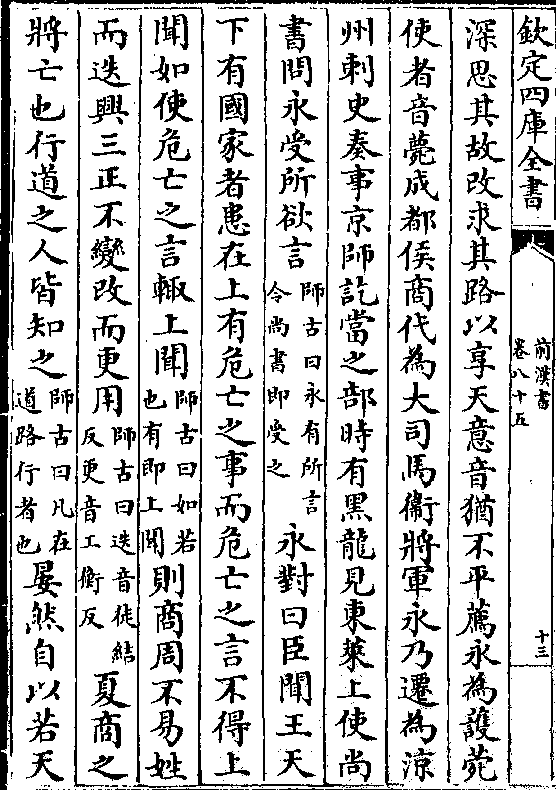 欽定四庫全書
前漢書
卷八十五
十三
深思其故改求其路以享天意音猶不平薦永為護菀
使者音薨成都侯商代為大司馬衞將軍永乃遷為涼
州刺史奏事京師訖當之部時有黑龍見東萊上使尚
書問永受所欲言師古曰永有所言令尚書即受之永對曰臣聞王天
下有國家者患在上有危亡之事而危亡之言不得上
聞如使危亡之言輙上聞師古曰如若也有即上聞則商周不易姓
而迭興三正不變改而更用師古曰迭音徒結反更音工衡反夏商之
將亡也行道之人皆知之師古曰凡在道路行者也晏然自以若天